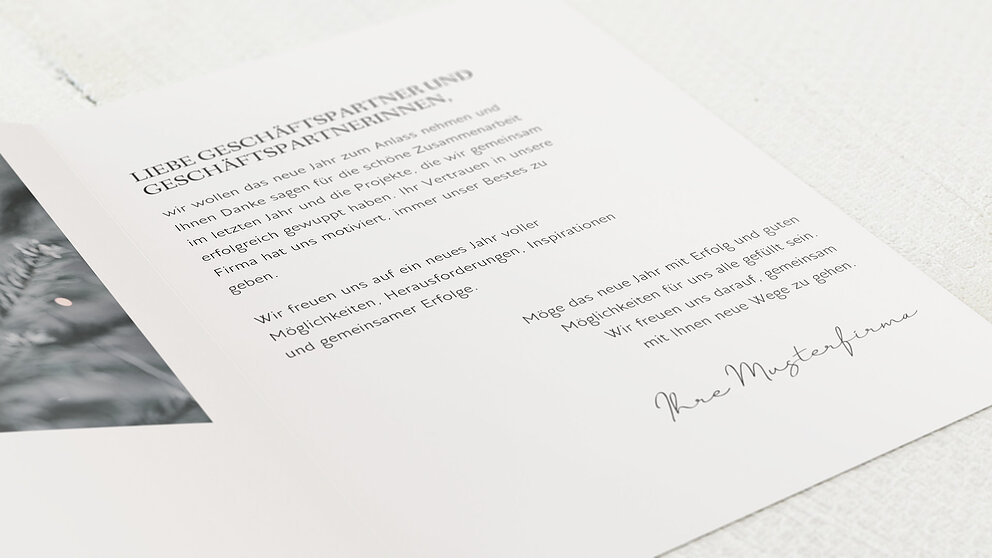 LIEBE GESCHÄFTSPARTNER UND
GESCHÄFTSPARTNERINNEN,
wir wollen das neue Jahr zum Anlass nehmen und
Ihnen Danke sagen für die schöne Zusammenarbeit
im letzten Jahr und die Projekte, die wir gemeinsam
erfolgreich gewuppt haben. Ihr Vertrauen in unsere
Firma hat uns motiviert, immer unser Bestes zu
geben.
Wir freuen uns auf ein neues Jahr voller
Möglichkeiten, Herausforderungen, Inspirationen
und gemeinsamer Erfolge.
Möge das neue Jahr mit Erfolg und guten
Möglichkeiten für uns alle gefüllt sein.
Wir freuen uns darauf, gemeinsam
mit Ihnen neue Wege zu gehen.
Ihre Musterfirma